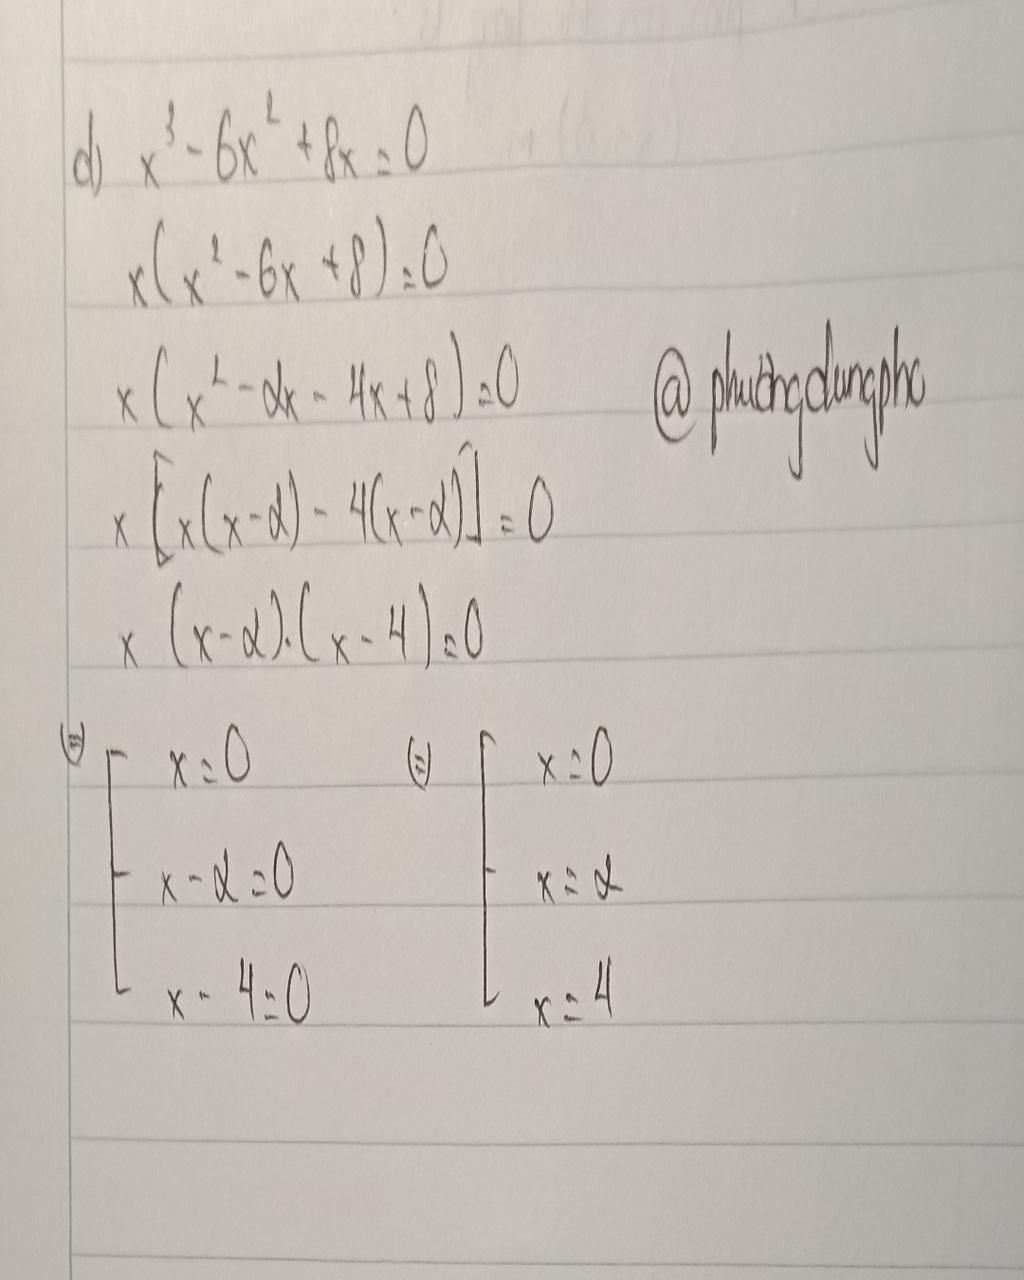 d) x³ - 6x² + 8x = 0
x(x² - 6x + 8) = 0
x(x² - 2x - 4x + 8) = 0
@phuongdungpho
x[x(x-2) - 4(x-2)] = 0
x(x-2).(x-4) = 0
(=) [ x = 0 (=) [ x = 0
x - 2 = 0 x = 2
x - 4 = 0 x = 4